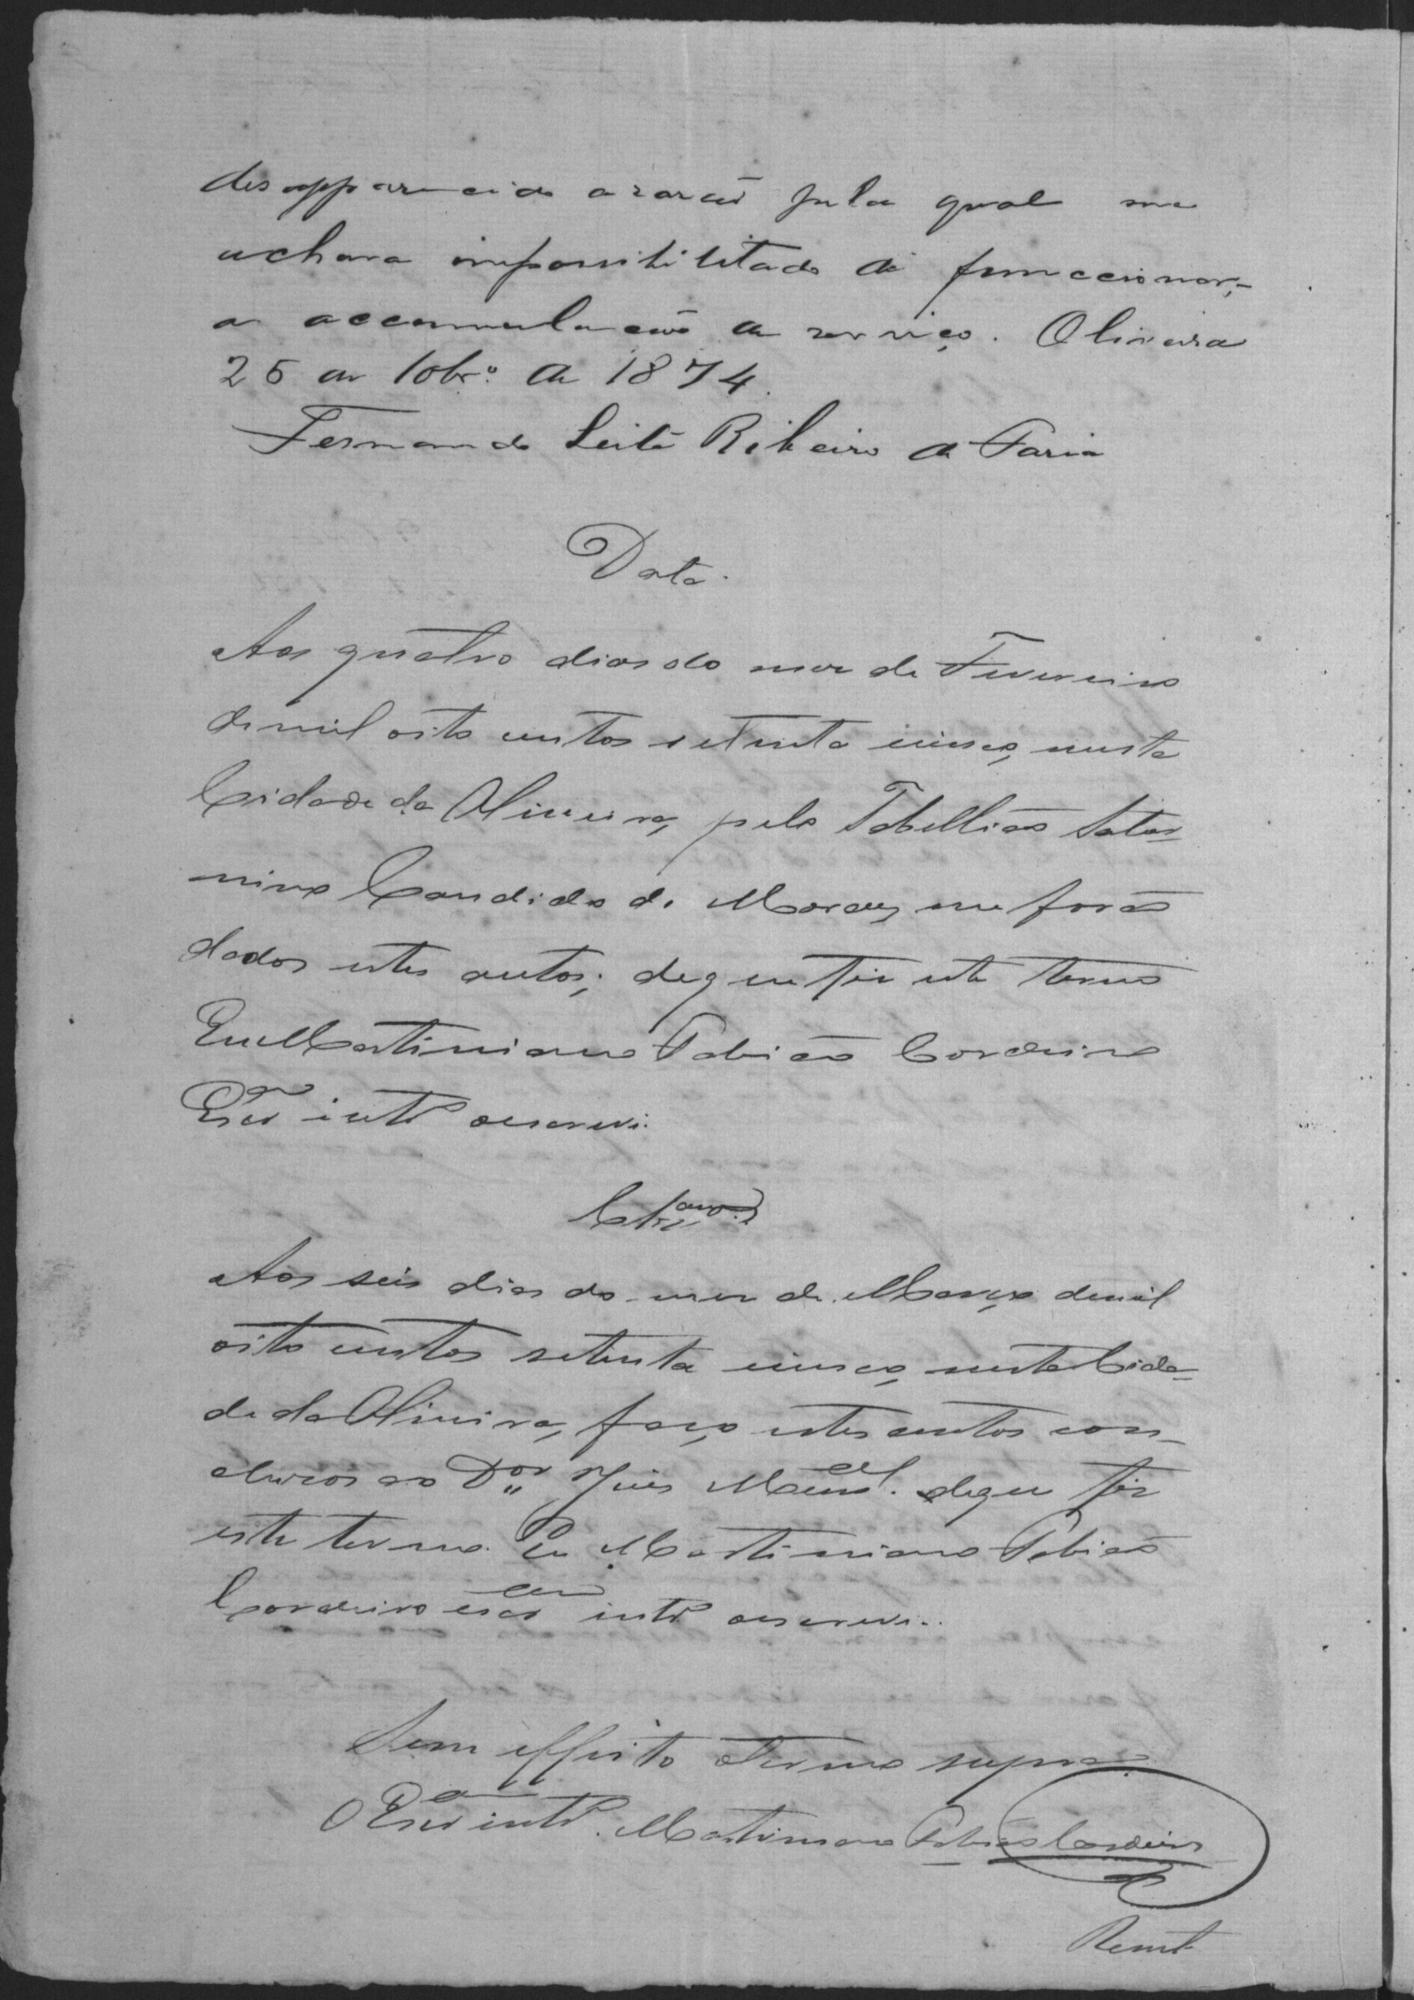 desapparecido a rasão pela qual me
achava impossibilitado de funccionar,
a accumulação de serviço. Oliveira
25 de 10brº de 1874.
Fernando Leite Ribeiro de Faria
Data.
Aos quatro dias do mez de Fevereiro
de mil oito centos setenta cinco, nesta
Cidade da Oliveira, pelo Tabellião Satur-
nino Candido de Moraes me forão
dados estes autos; de que fiz este termo
Eu Martiniano Fabião Cordeiro
Escão intº o escrevi.
Clsão
Aos seis dias do mez de Março de mil
oito centos setenta cinco, nesta Cida-
de da Oliveira, faço estes autos con-
clusos ao Dor Juis Munal. de que fiz
este termo. Eu Martiniano Fabião
Cordeiro escão intº o escrevi..
Sem effeito o termo supra.
O Escão intº. Martiniano Fabião Cordeiro